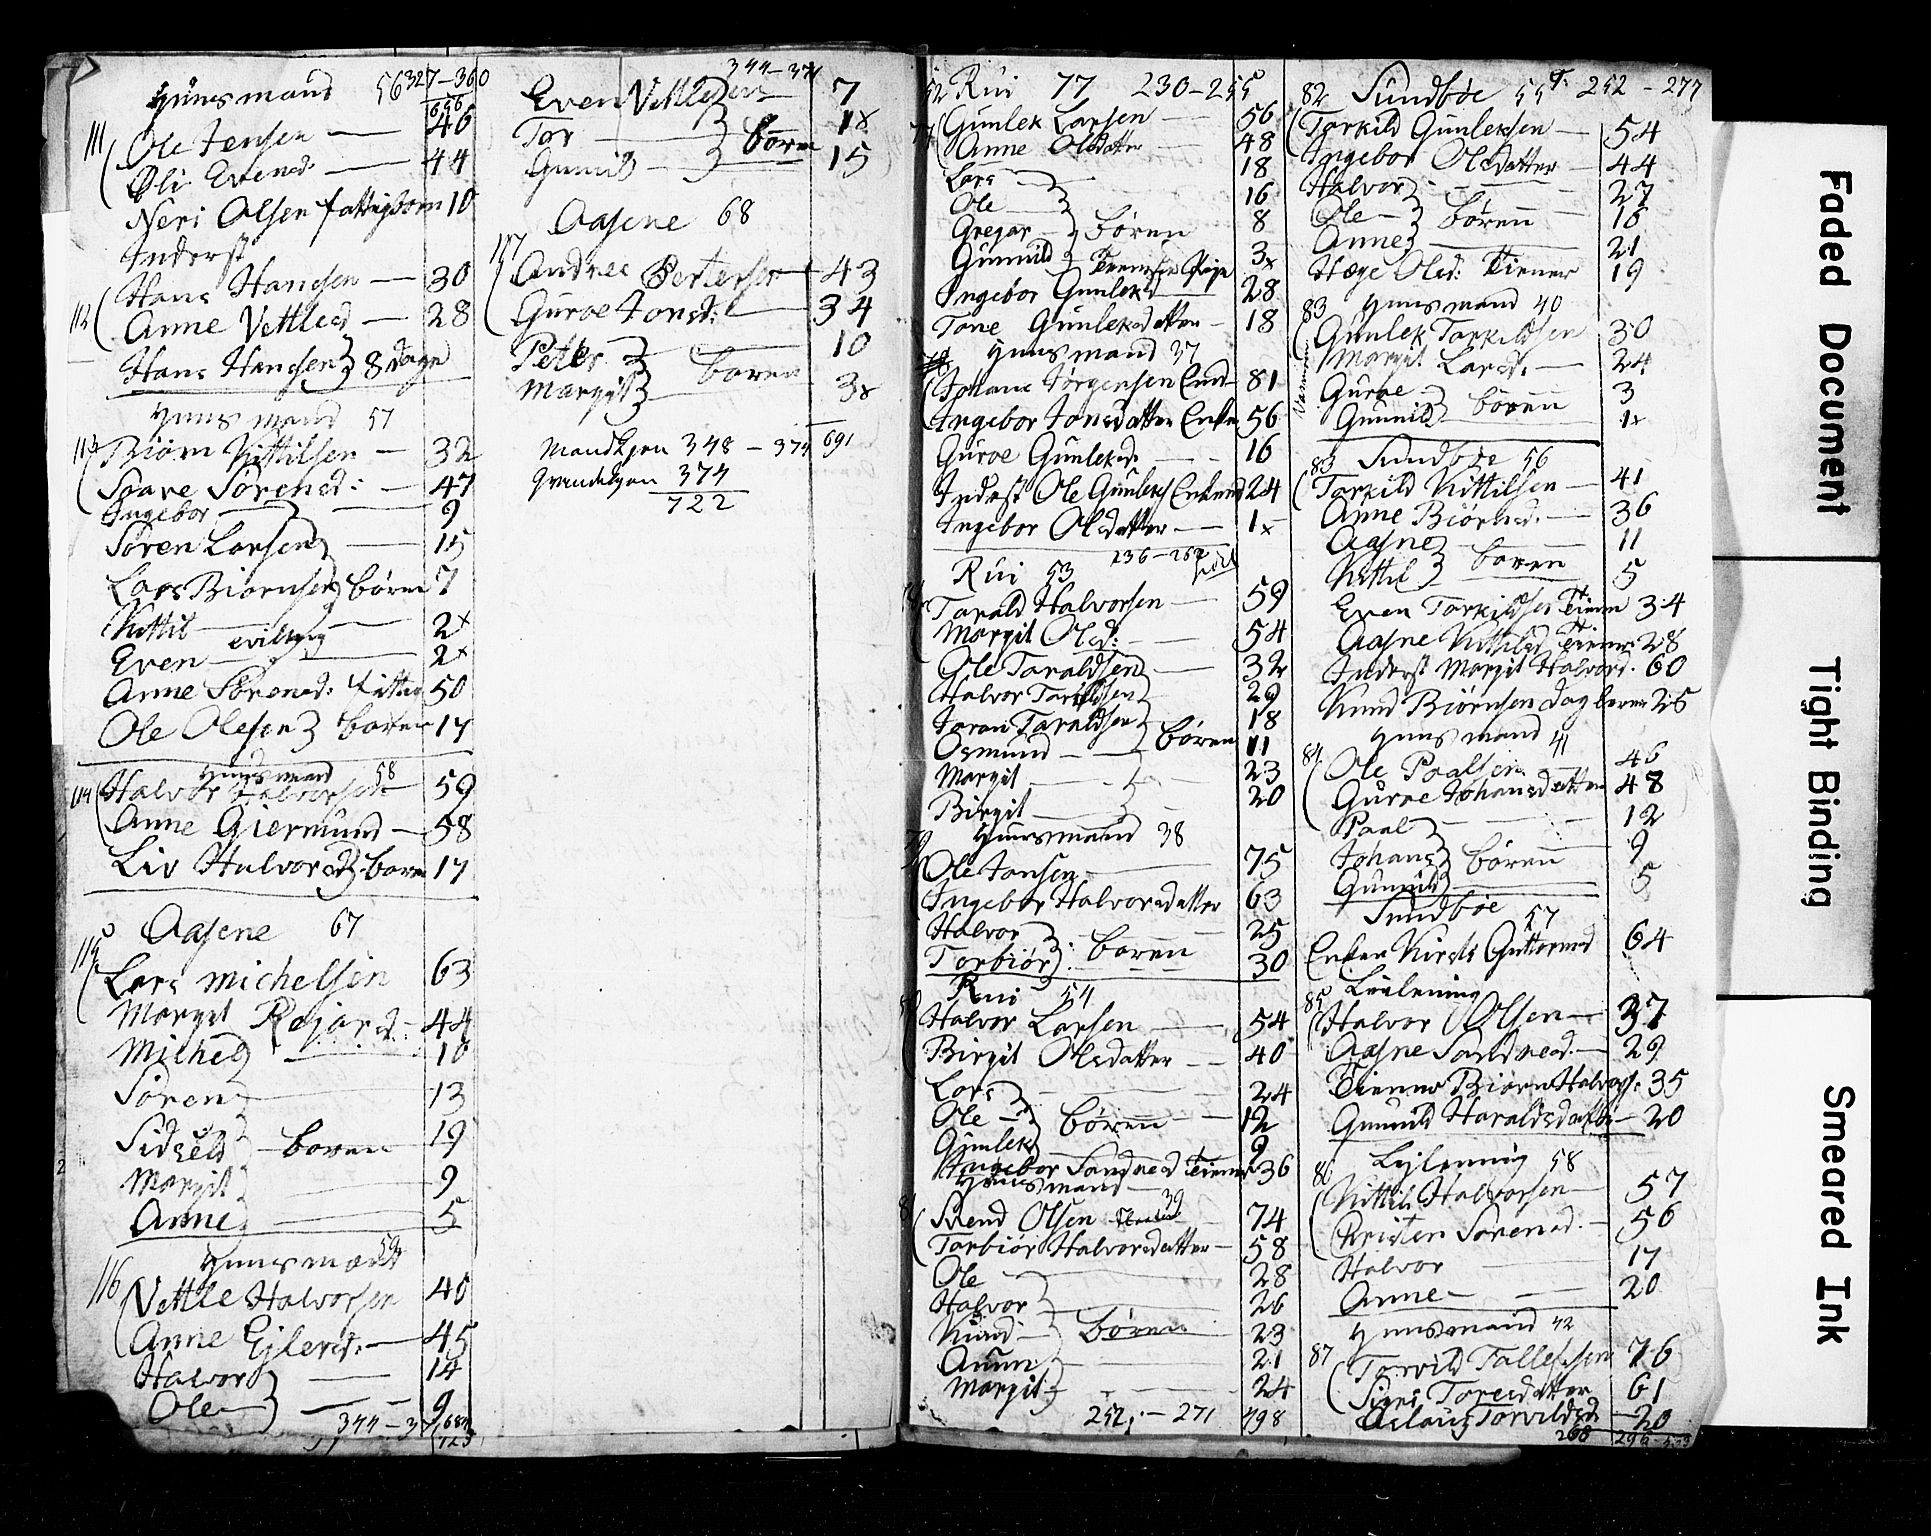 Huusmand 56 327-360
656
111 Ole Jensen — 46
Øli Evensd: — 44
Neri Olsen fattigbarn 10
Inderst
Hans Hansen — 30
112 Anne Vettlesd — 28
Hans Hansen 8 dage
Huusmand 57
113 Biørn Kittilsen — 32
Saave Sørensd: — 47
Ingebor — 9
Søren Larsen — 15
Lars Biørnsen børen 7
Kittil — 2x
Even 2x
Anne Sørensd: 50
Ole Olesen børen 17
Huusmand 58
114 Halvor Halvorsen 59
Anne Giermund — 58
Liv Halvorsd børen 17
Aasene 67
115 Lars Michelsen 63
Margit 44
Michel 16
Søren 13
Sidsell børen 19
Margit 9
Anne 5
Huusmand 59
116 Vettle Halvorsen 40
Anne Ejlersd: — 45
Halvor — 14
Ole — 9
344-37
344-371
Even Vettlesen 7
Tor børen 1x
Gunild 15
Aasene 68
117 Andres 43
Guroe Jonsd: 34
Petter 10
Margit børen 3x
Mandkjøn 348 - 374 691
Qvindekjøn 374
722
52 Rui 77 230-255
77 Gunlek Larsen — 56
Anne Olsdatter 48
Lars 18
Ole 16
Gregar børen 8
Gunnild 3x
Ingebor Gunleksd 28
Tone Gunleksdatter 18
Huusmand 37
Johans Jørgensen 81
Ingebor Jonsdatter Enke 56
Guroe Gunleksd. 16
Inderst Ole Gunleks Enkemd 24
Ingebor Olsdatter — 1x
236-262
Rui 53
Tarald Halvorsen — 59
Margit Olsd: 54
Ole Taraldsen — 32
Halvor Taraldsen 29
Joran Taraldsen 18
Osmund — børen 11
Margit 23
Birgit 20
Huusmand 38
79 Ole Jonsen 75
Ingebor Halvorsdatter 63
Halvor 25
Torbiør børen 30
Rui 54
Halvor Larsen 54
Birgit Olsdatter — 40
Lars 24
Ole børen 12
Gunlek 9
Ingebor Sandresd Tiener 36
Huusmand 39
Svend Olsen 74
Torbiør Halvorsdatter — 58
Ole 28
Halvor 26
Knud børen 23
Aaun 21
Margit 24
252 - 271 498
82 Sundbøe 55 252 - 277
Torkild Gunleksen — 54
Ingebor Olsdatter — 44
Halvor 27
Ole børen 16
Anne 21
Hæge Olsd: Tiener 19
83 Huusmand 40
Gunlek Torkildsen 30
Margit Larsd. — 24
Guroe 3
Gunnild børen 1x
83 Sundbøe 56
Torkild Kittilsen — 41
Anne Biørnsd. — 36
Aasne 11
Kittil børen 5
Even Torkildsen Tiener 34
Aasne Kittilsd Tiener 28
Inderst Margit Halvord. 60
Knud Biørnsen 25
Huusmand 41
84 Ole Paalsen 46
Guroe Johansdatter 48
Paal 12
Johans børen 9
Gunnild 5
Sundbøe 57
Enken Kirsti Guttormsd 64
85 Leilening
Halvor Olsen — 37
Aasne Sandresd. — 29
Tienner Biørn Halvors. 35
Gunnild Haraldsdatter — 20
86 Lejlening 58
Kittil Halvorsen 57
Kristen Sørensd. — 56
Halvor 17
Anne — 20
Huusmand 42
87 Torvild Tallefsen 76
Signi Toresdatter 61
Aslaug Torvildsd — 20
268
Faded Document
Tight Binding
Smeared Ink